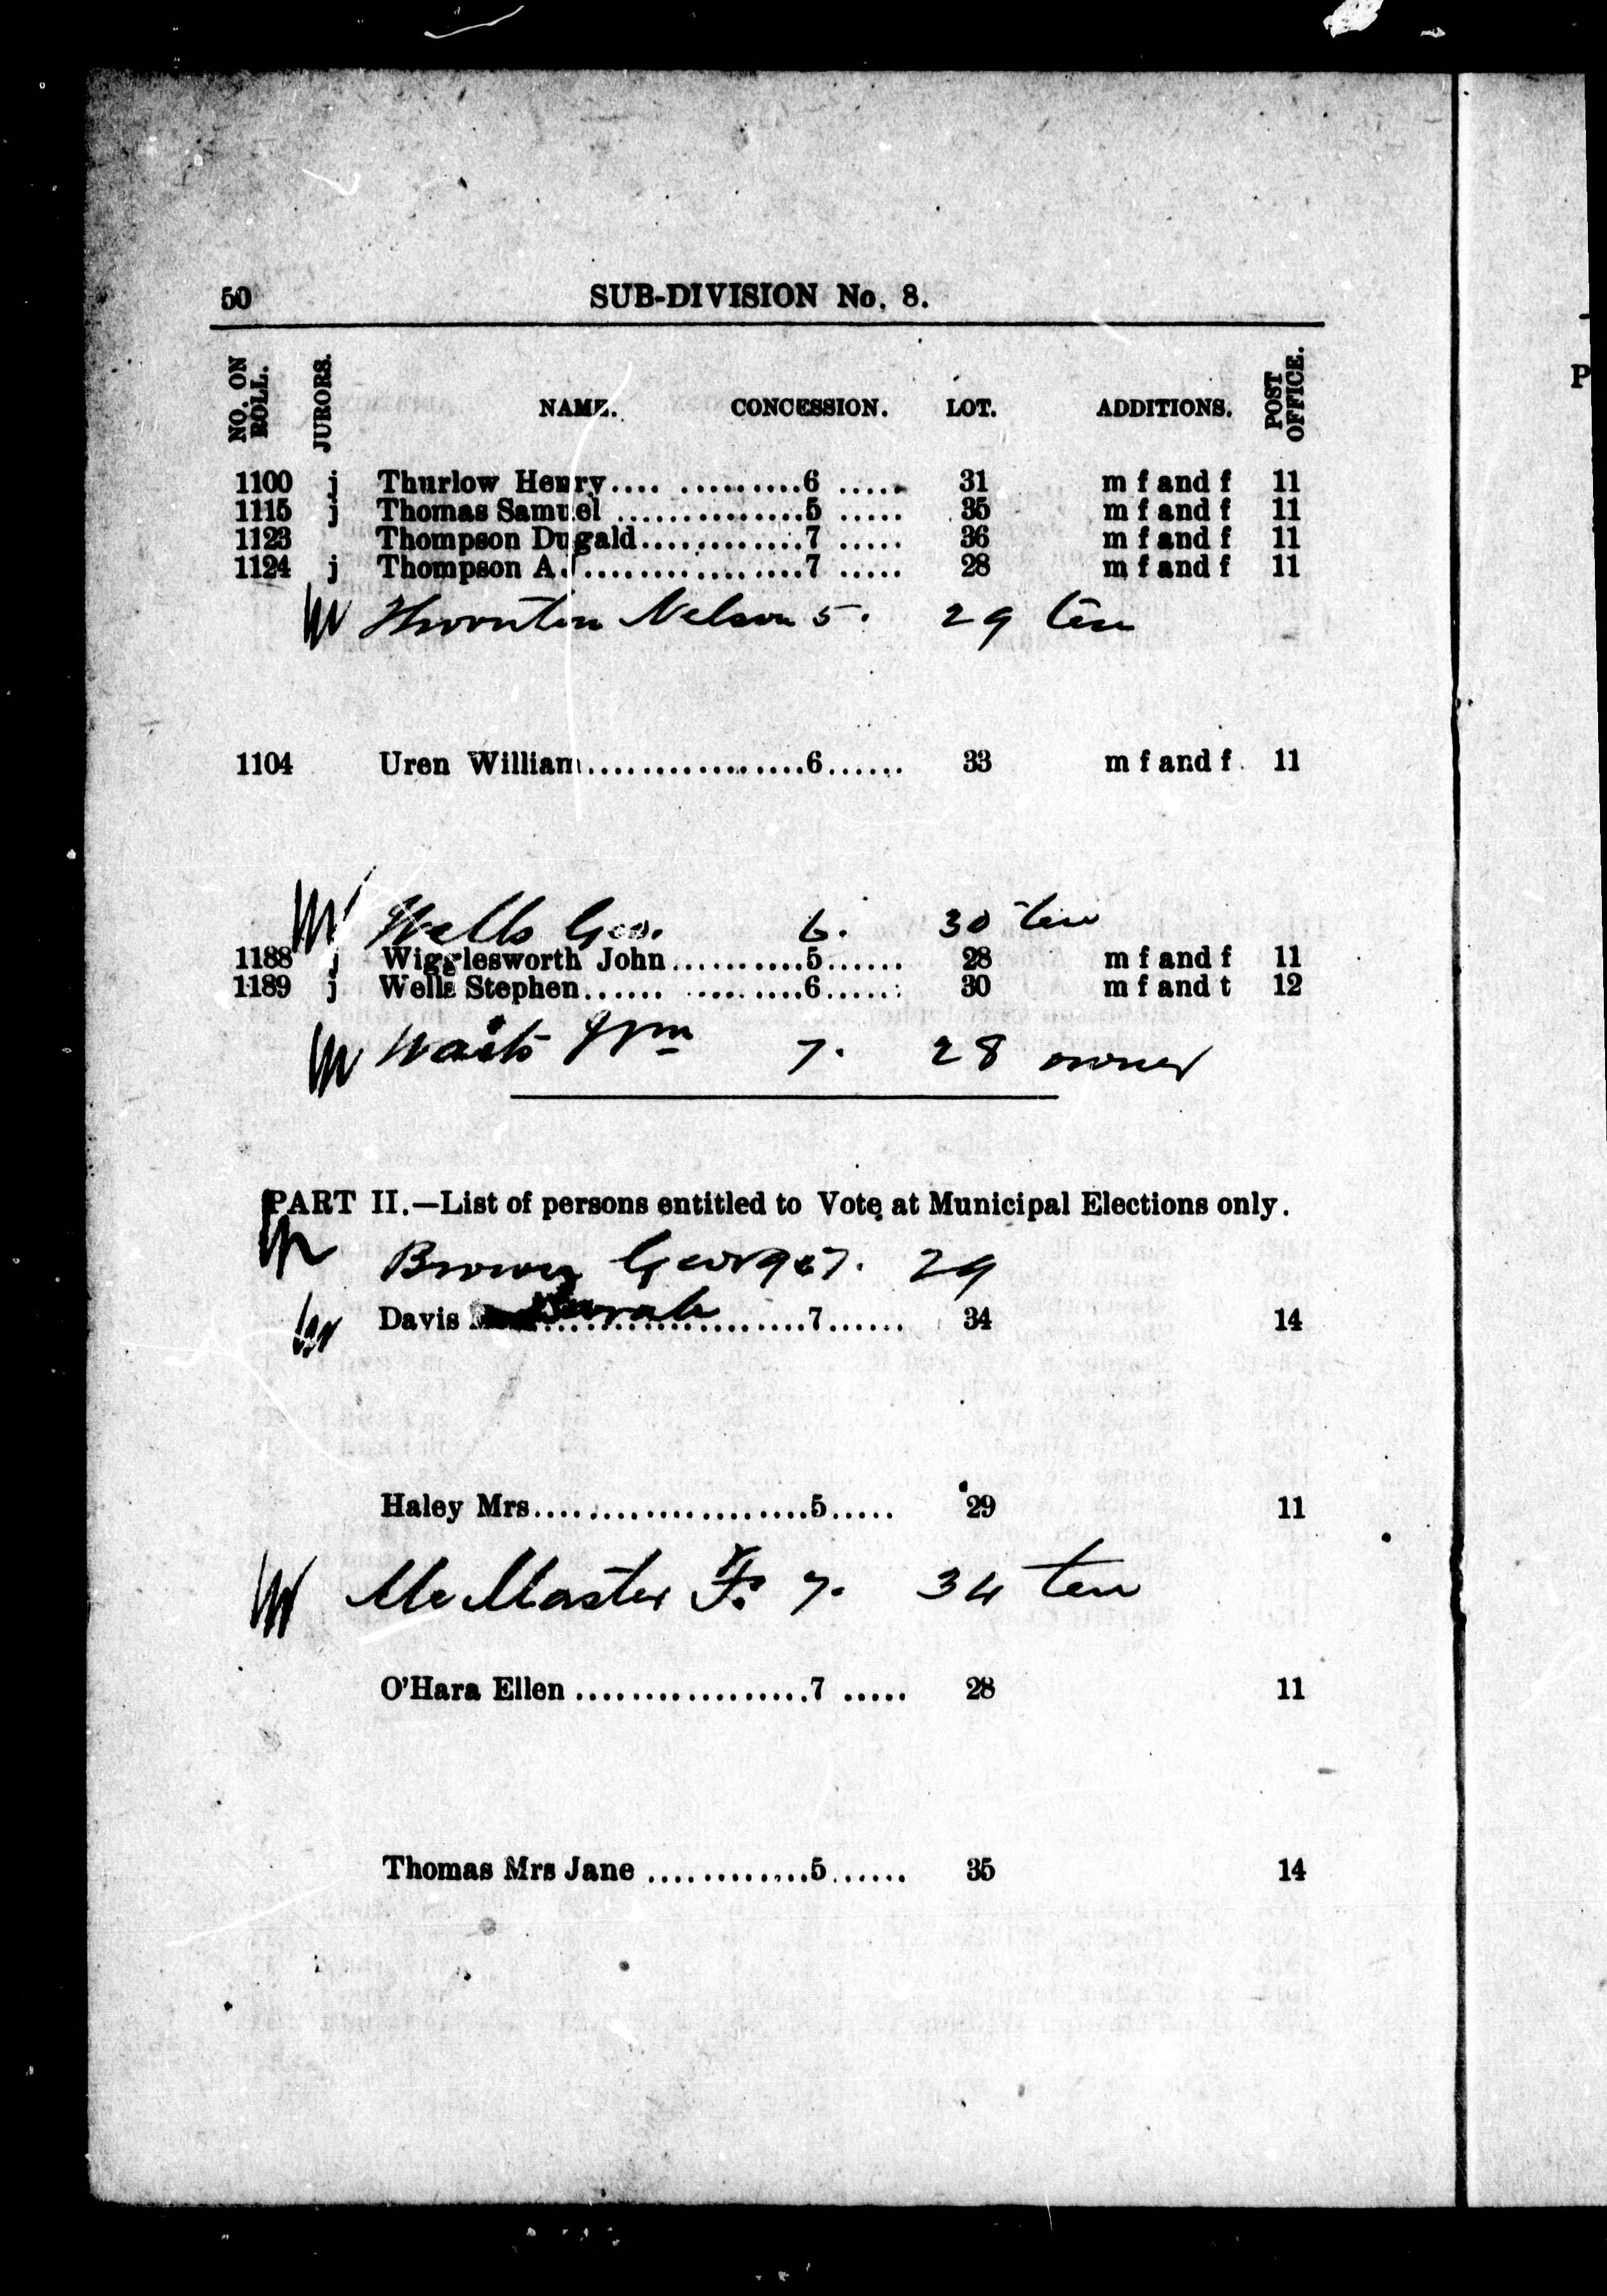 50 SUB-DIVISION No. 8.
NO. ON ROLL. JURORS. NAME. CONCESSION. LOT. ADDITIONS. POST OFFICE.
1100 j Thurlow Henry.... .........6 ..... 31 m f and f 11
1115 j Thomas Samuel ..............5 ..... 35 m f and f 11
1123 Thompson Dugald............7 ..... 36 m f and f 11
1124 j Thompson A. ................7 ..... 28 m f and f 11
Thornton Nelson 5. 29 ten
1104 Uren William................6...... 33 m f and f 11
Wells Geo. 6. 30 ten
1188 j Wigglesworth John..........5...... 28 m f and f 11
1189 j Wells Stephen...... .........6...... 30 m f and t 12
Wm 7. 28 owner
PART II.—List of persons entitled to Vote at Municipal Elections only.
Brown George 7. 29
Davis Sarah ..........7...... 34 14
Haley Mrs....................5..... 29 11
McMaster F. 7. 34 ten
O'Hara Ellen .................7 ..... 28 11
Thomas Mrs Jane ............5...... 35 14
P